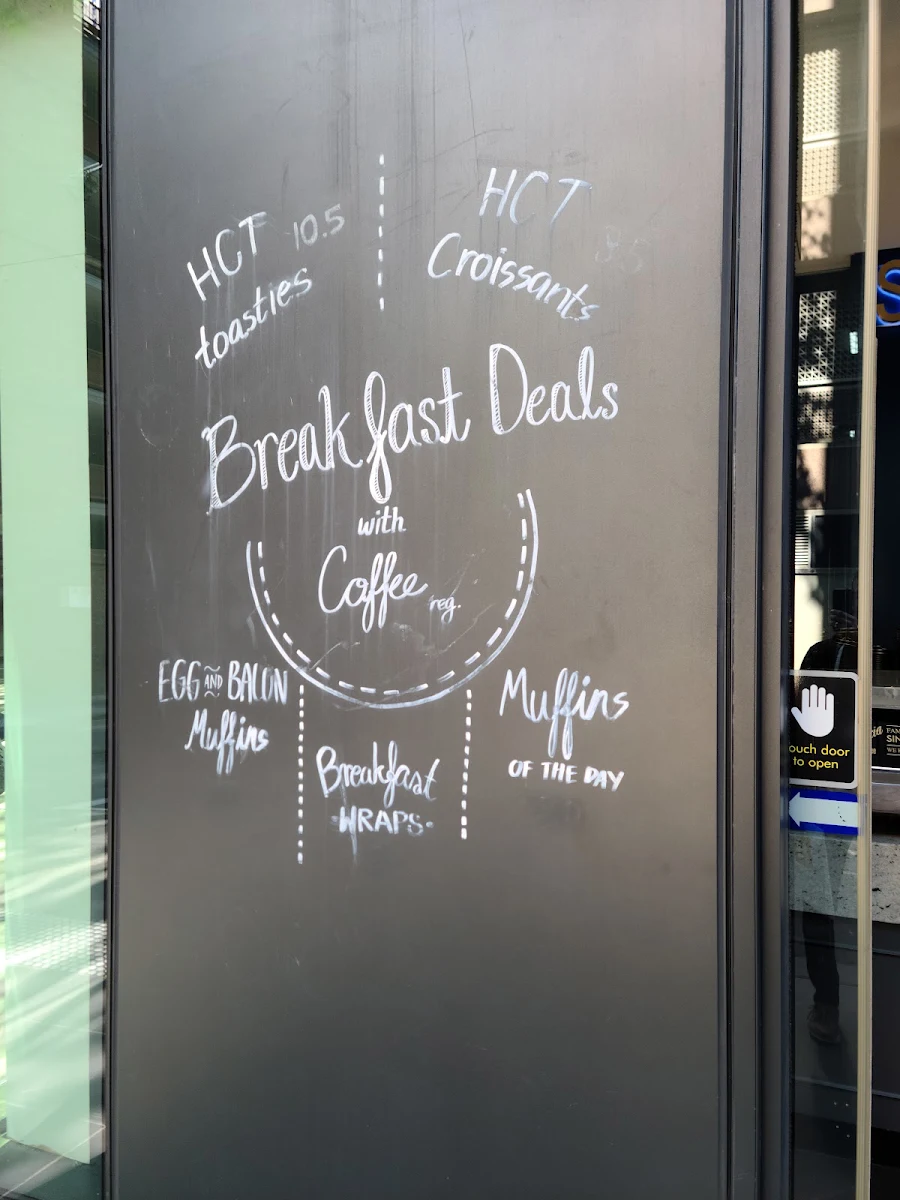 HCT 10.5
toasties
HCT
Croissants
Breakfast Deals
with
Coffee reg.
EGG AND BACON
Muffins
Breakfast
-WRAPS-
Muffins
OF THE DAY
ouch door
to open